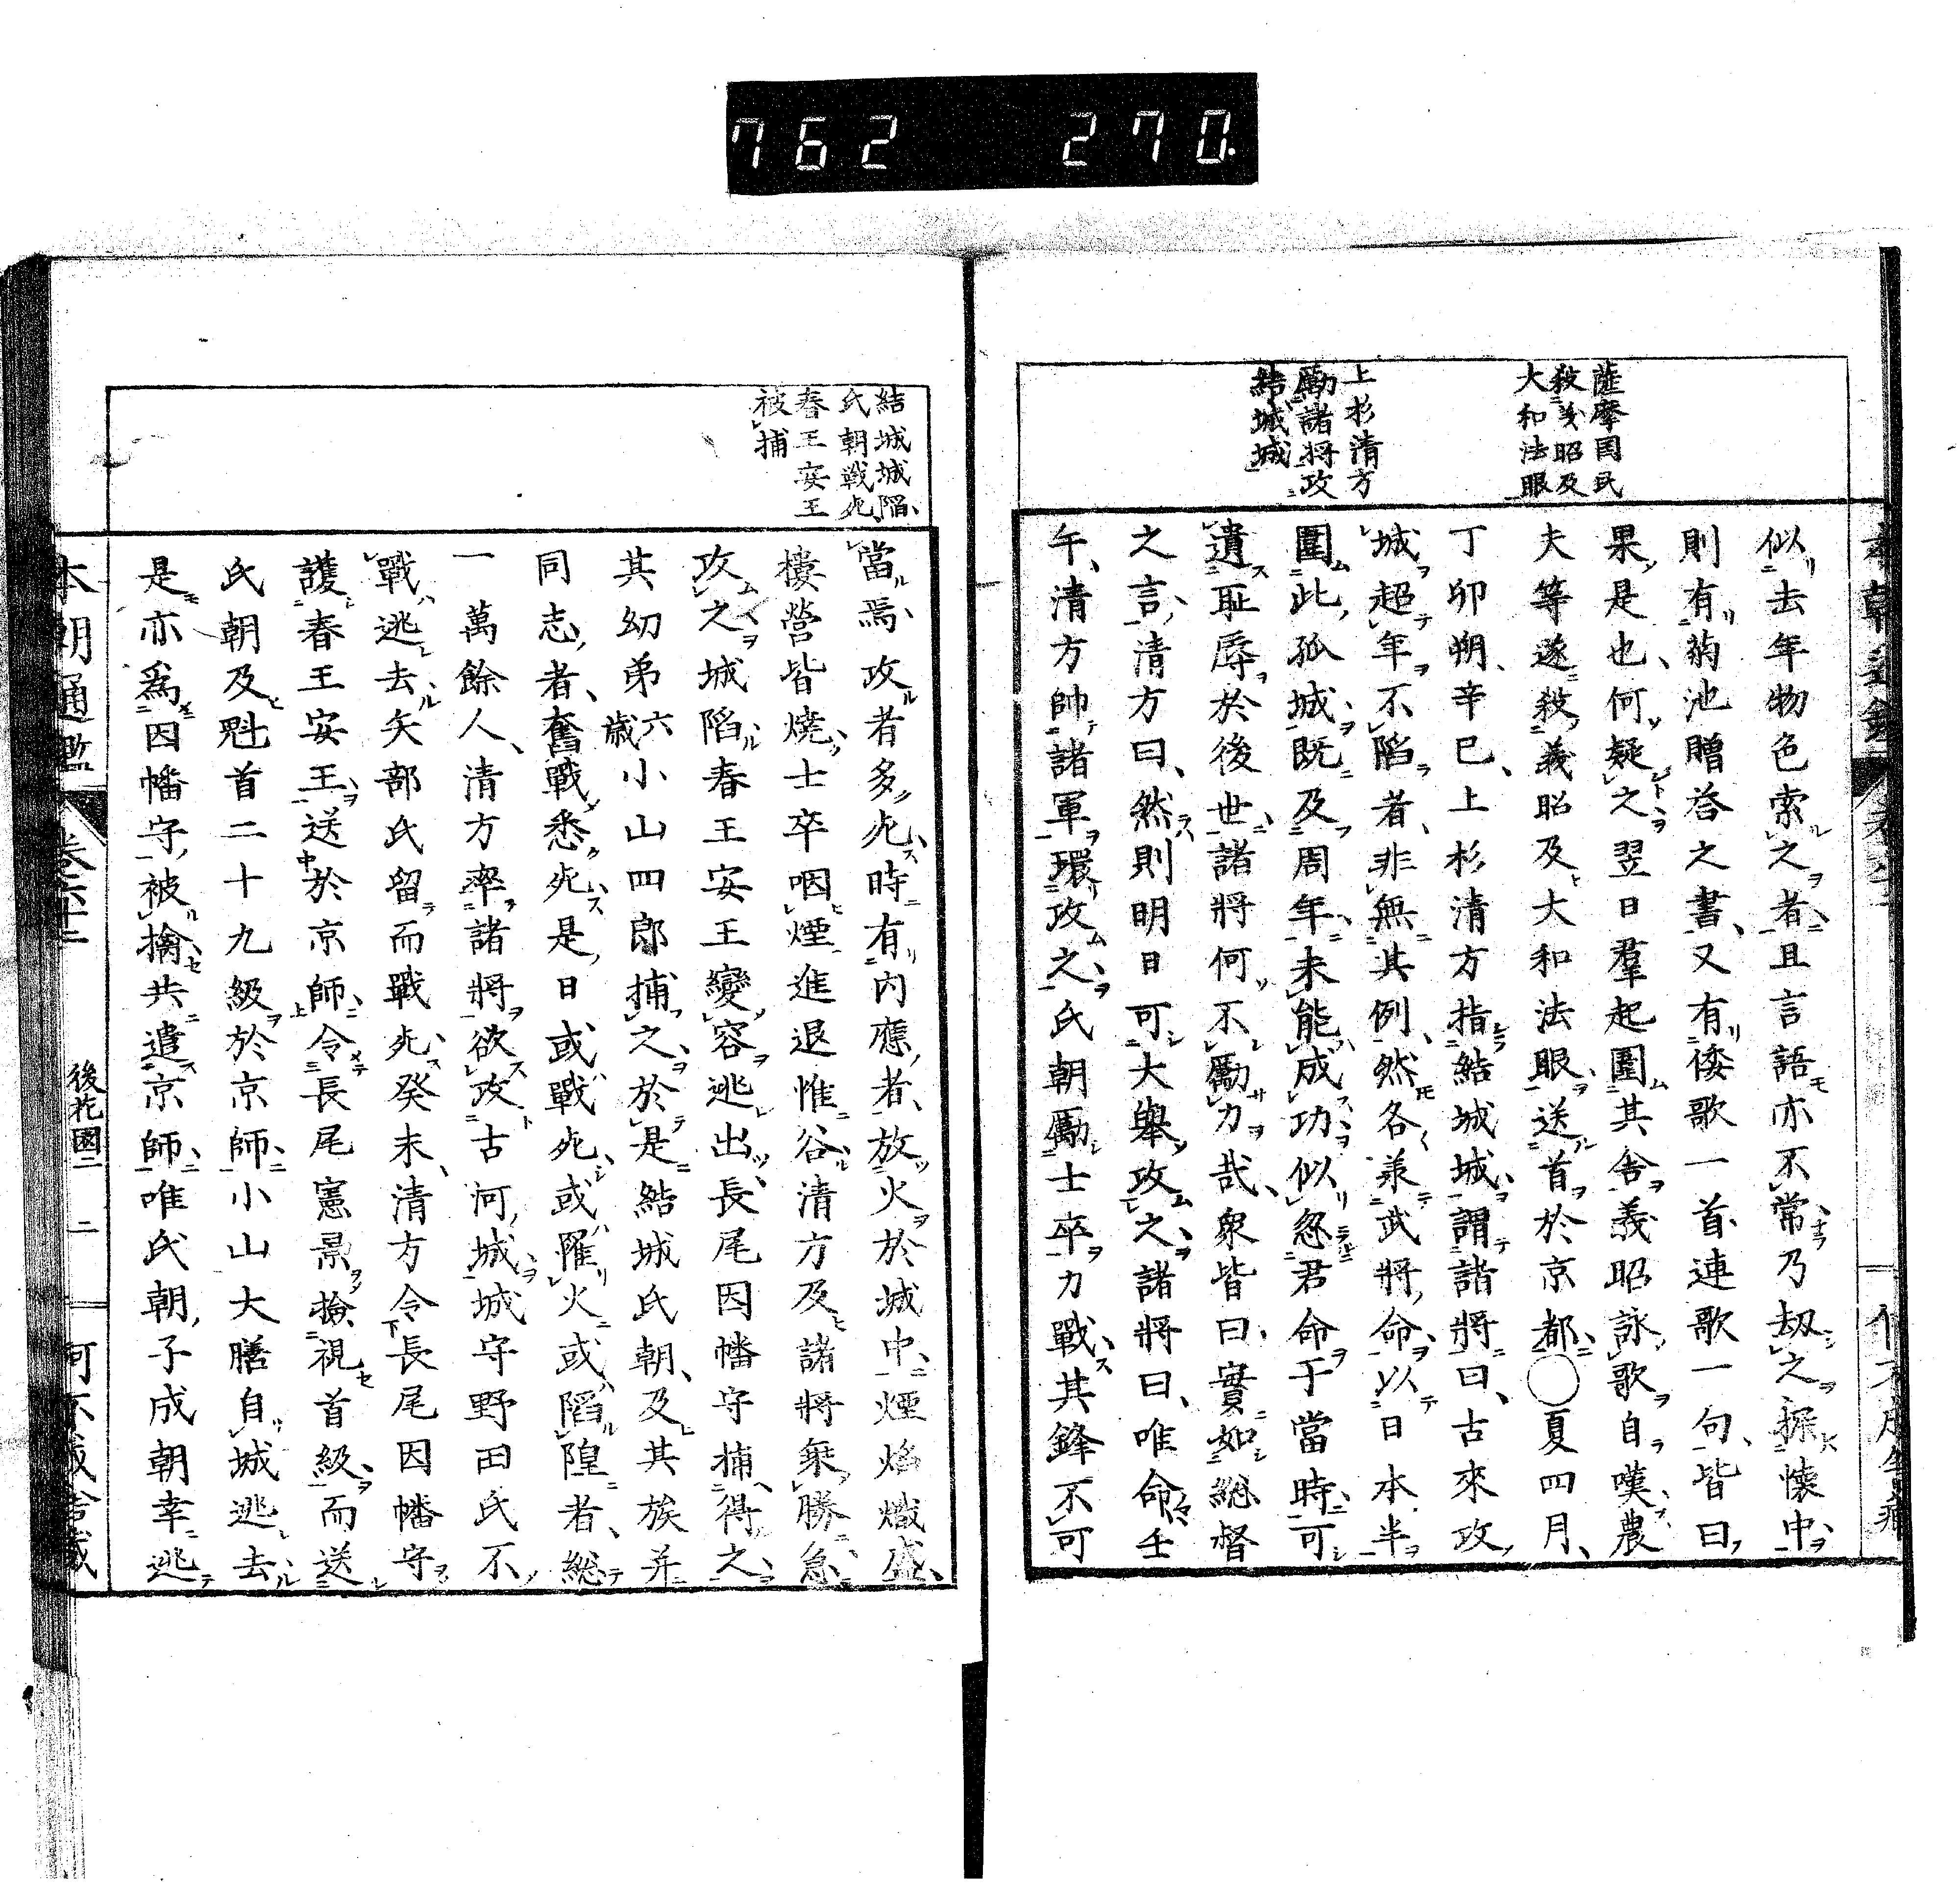 762 270
薩摩國民
殺義昭及
大和法眼
上杉清方
勵諸將攻
結城城
似去年物色索之者且言語亦不常乃刼之探懷中
則有菊池贈答之書又有倭歌一首連歌一句皆曰
果是也何疑之翌日羣起圍其舎義昭詠歌自嘆農
夫等遂殺義昭及大和法眼送首於京都○夏四月
丁卯朔辛巳上杉清方指結城城謂諸將曰古來攻
城超年不陷者非無其例然各兼武將命以日本半
圍此孤城既及周年未能成功似忽君命于當時可
遺耻辱於後世諸將何不勵力哉衆皆曰實如総督
之言清方曰然則明日可大舉攻之諸將曰唯命壬
午清方帥諸軍環攻之氏朝勵士卒力戰其鋒不可
結城城陷
氏朝戰死
春王安王
被捕
當焉攻者多死時有内應者放火於城中煙焰熾盛
樓營皆燒士卒咽煙進退惟谷清方及諸將乗勝急
攻之城陷春王安王變容逃出長尾因幡守捕得之
其幼弟六歳小山四郎捕之於是結城氏朝及其族并
同志者奮戰悉死是日或戰死或罹火或陷隍者総
一萬餘人清方率諸將欲攻古河城城守野田氏不
戰逃去矢部氏留而戰死癸未清方令長尾因幡守
護春王安王送於京師令長尾憲景撿視首級而送
氏朝及魁首二十九級於京師小山大膳自城逃去
是亦爲因幡守被擒共遣京師唯氏朝子成朝幸逃
本朝通鑑 卷六十二 後花園二 二